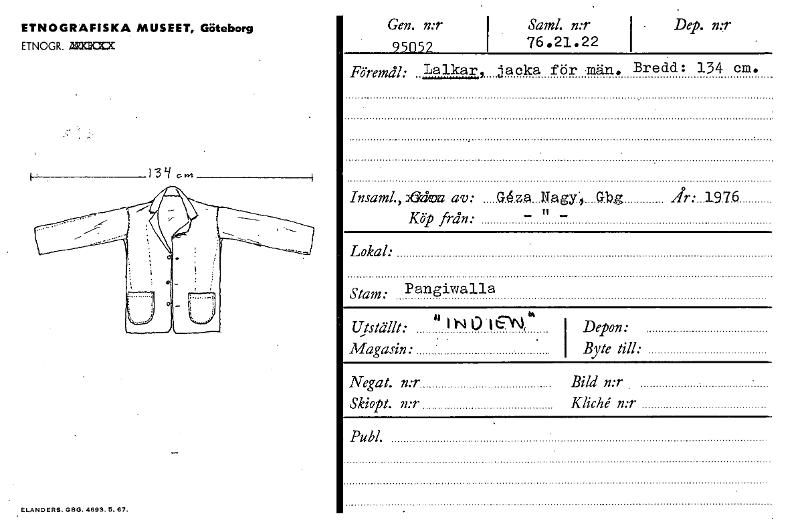 ETNOGRAFISKA MUSEET, Göteborg
ETNOGR.
134 cm
ELANDERS. GBG. 4693. 5. 67.
Gen. n:r Saml. n:r Dep. n:r
95052 76.21.22
Föremål: Lalkar, jacka för män. Bredd: 134 cm.
Insaml., Gåva av: Géza Nagy, Gbg År: 1976
Köp från: - " -
Lokal:
Stam: Pangiwalla
Utställt: "INDIEN" Depon:
Magasin: Byte till:
Negat. n:r Bild n:r
Skiopt. n:r Kliché n:r
Publ.